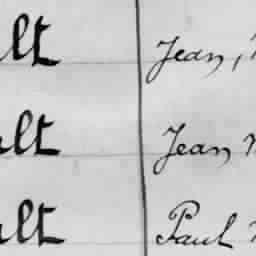 ult Jean,
ult Jean
ult Paul